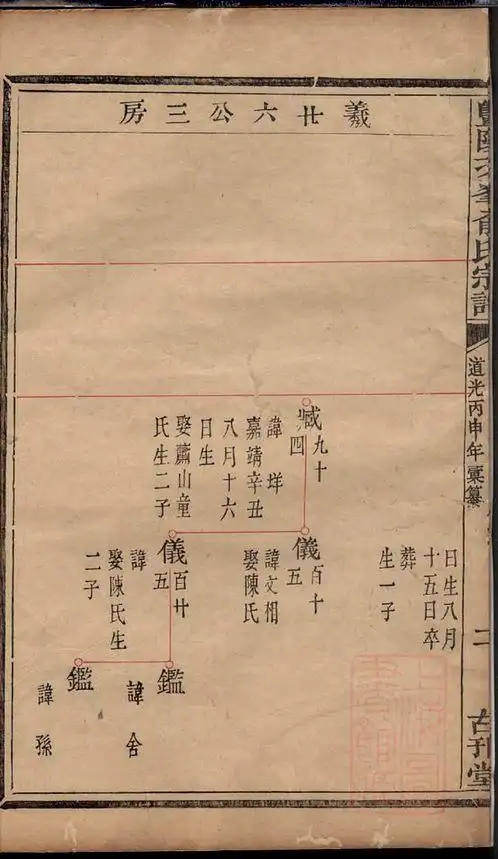 羲廿六公三房
俞氏宗譜
道光丙申年彙纂
二
古刊堂
日生八月
十五日卒
葬
生一子
臧九十
四
諱垟
嘉靖辛丑
八月十六
日生
娶蕭山童
氏生二子
儀百十
五
諱文相
娶陳氏
儀百廿
五
諱
娶陳氏生
二子
鑑
諱舍
鑑
諱孫